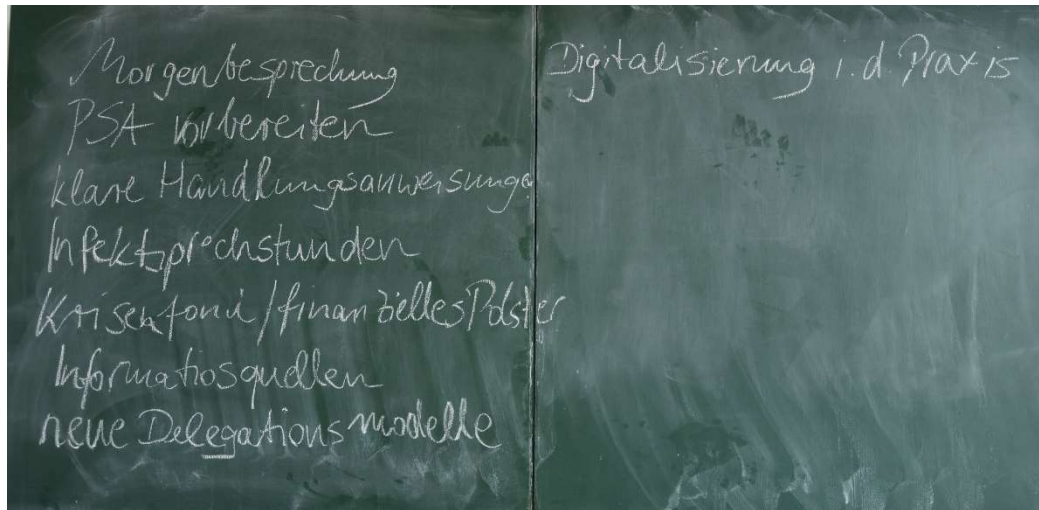 Morgenbesprechung
PSA vorbereiten
klare Handlungsanweisungen
Infektsprechstunden
Krisenfond/finanzielles Polster
Informatiosquellen
neue Delegationsmodelle
Digitalisierung i.d. Praxis